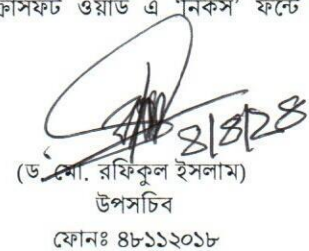 ক্রোসফট ওয়ার্ড এ 'নিকস' ফন্টে
৪/৪/২৪
(ড. মো. রফিকুল ইসলাম)
উপসচিব
ফোনঃ ৪৮১১২০১৮